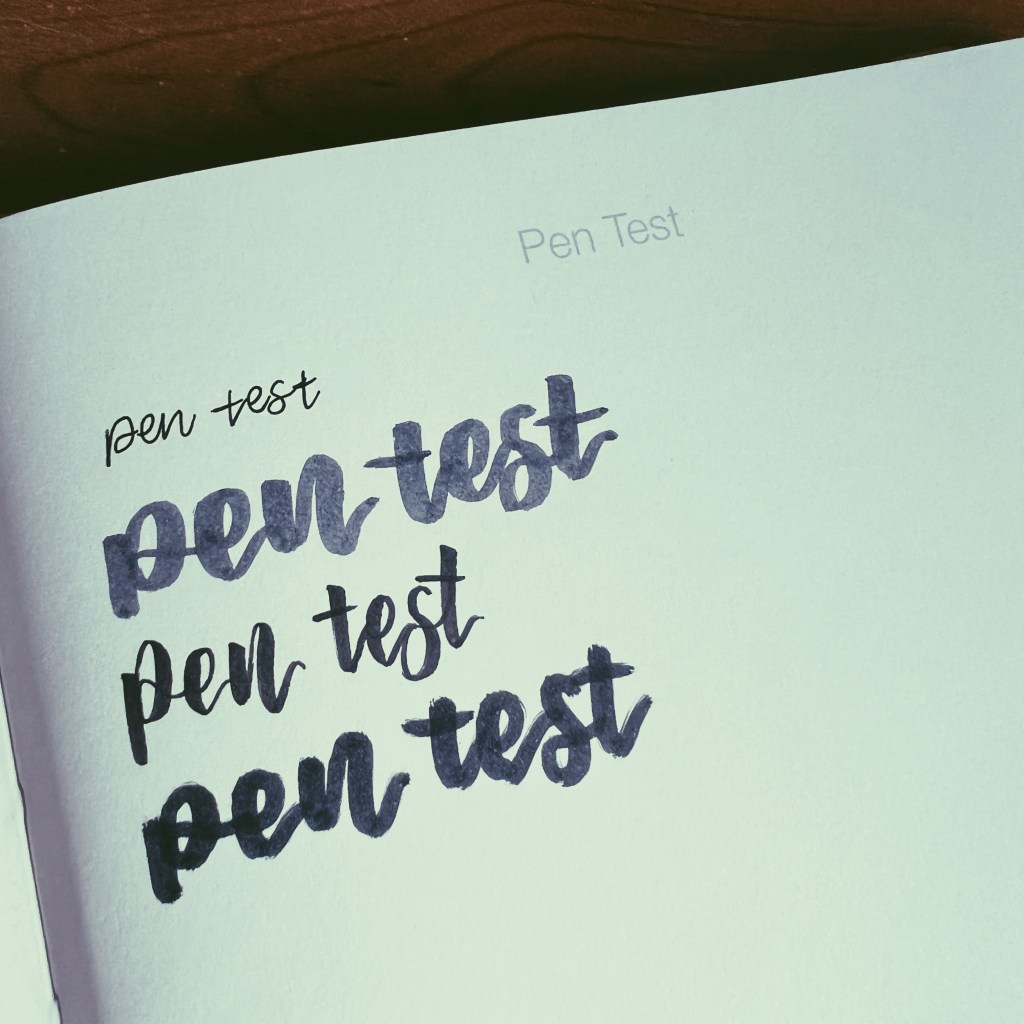 Pen Test
pen test
pen test
pen test
pen test